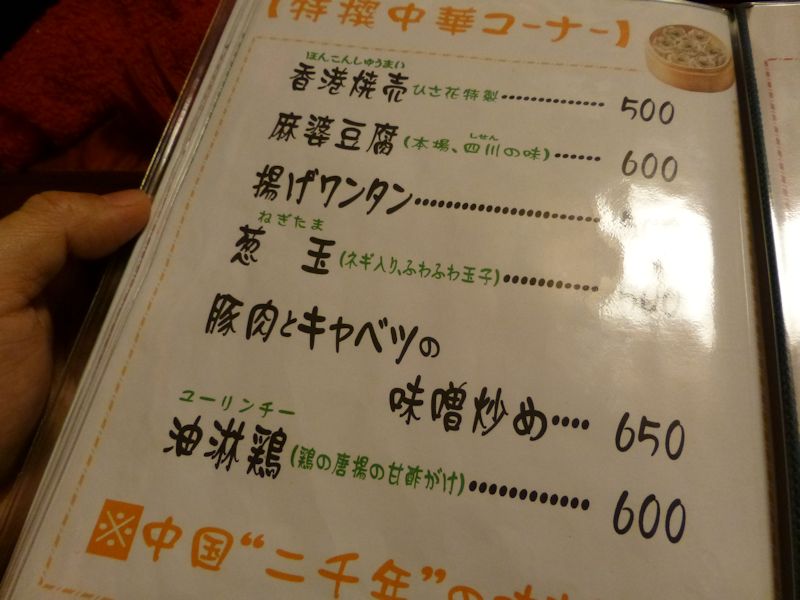 【特撰中華コーナー】
ほんこんしゅうまい
香港焼売 ひさ花特製…………… 500
しせん
麻婆豆腐(本場、四川の味)…… 600
揚げワンタン……………………
ねぎたま
葱 玉(ネギ入り、ふわふわ玉子)…………
豚肉とキャベツの
味噌炒め…… 650
ユーリンチー
油淋鶏(鶏の唐揚の甘酢がけ)………… 600
※中国“二千年”の